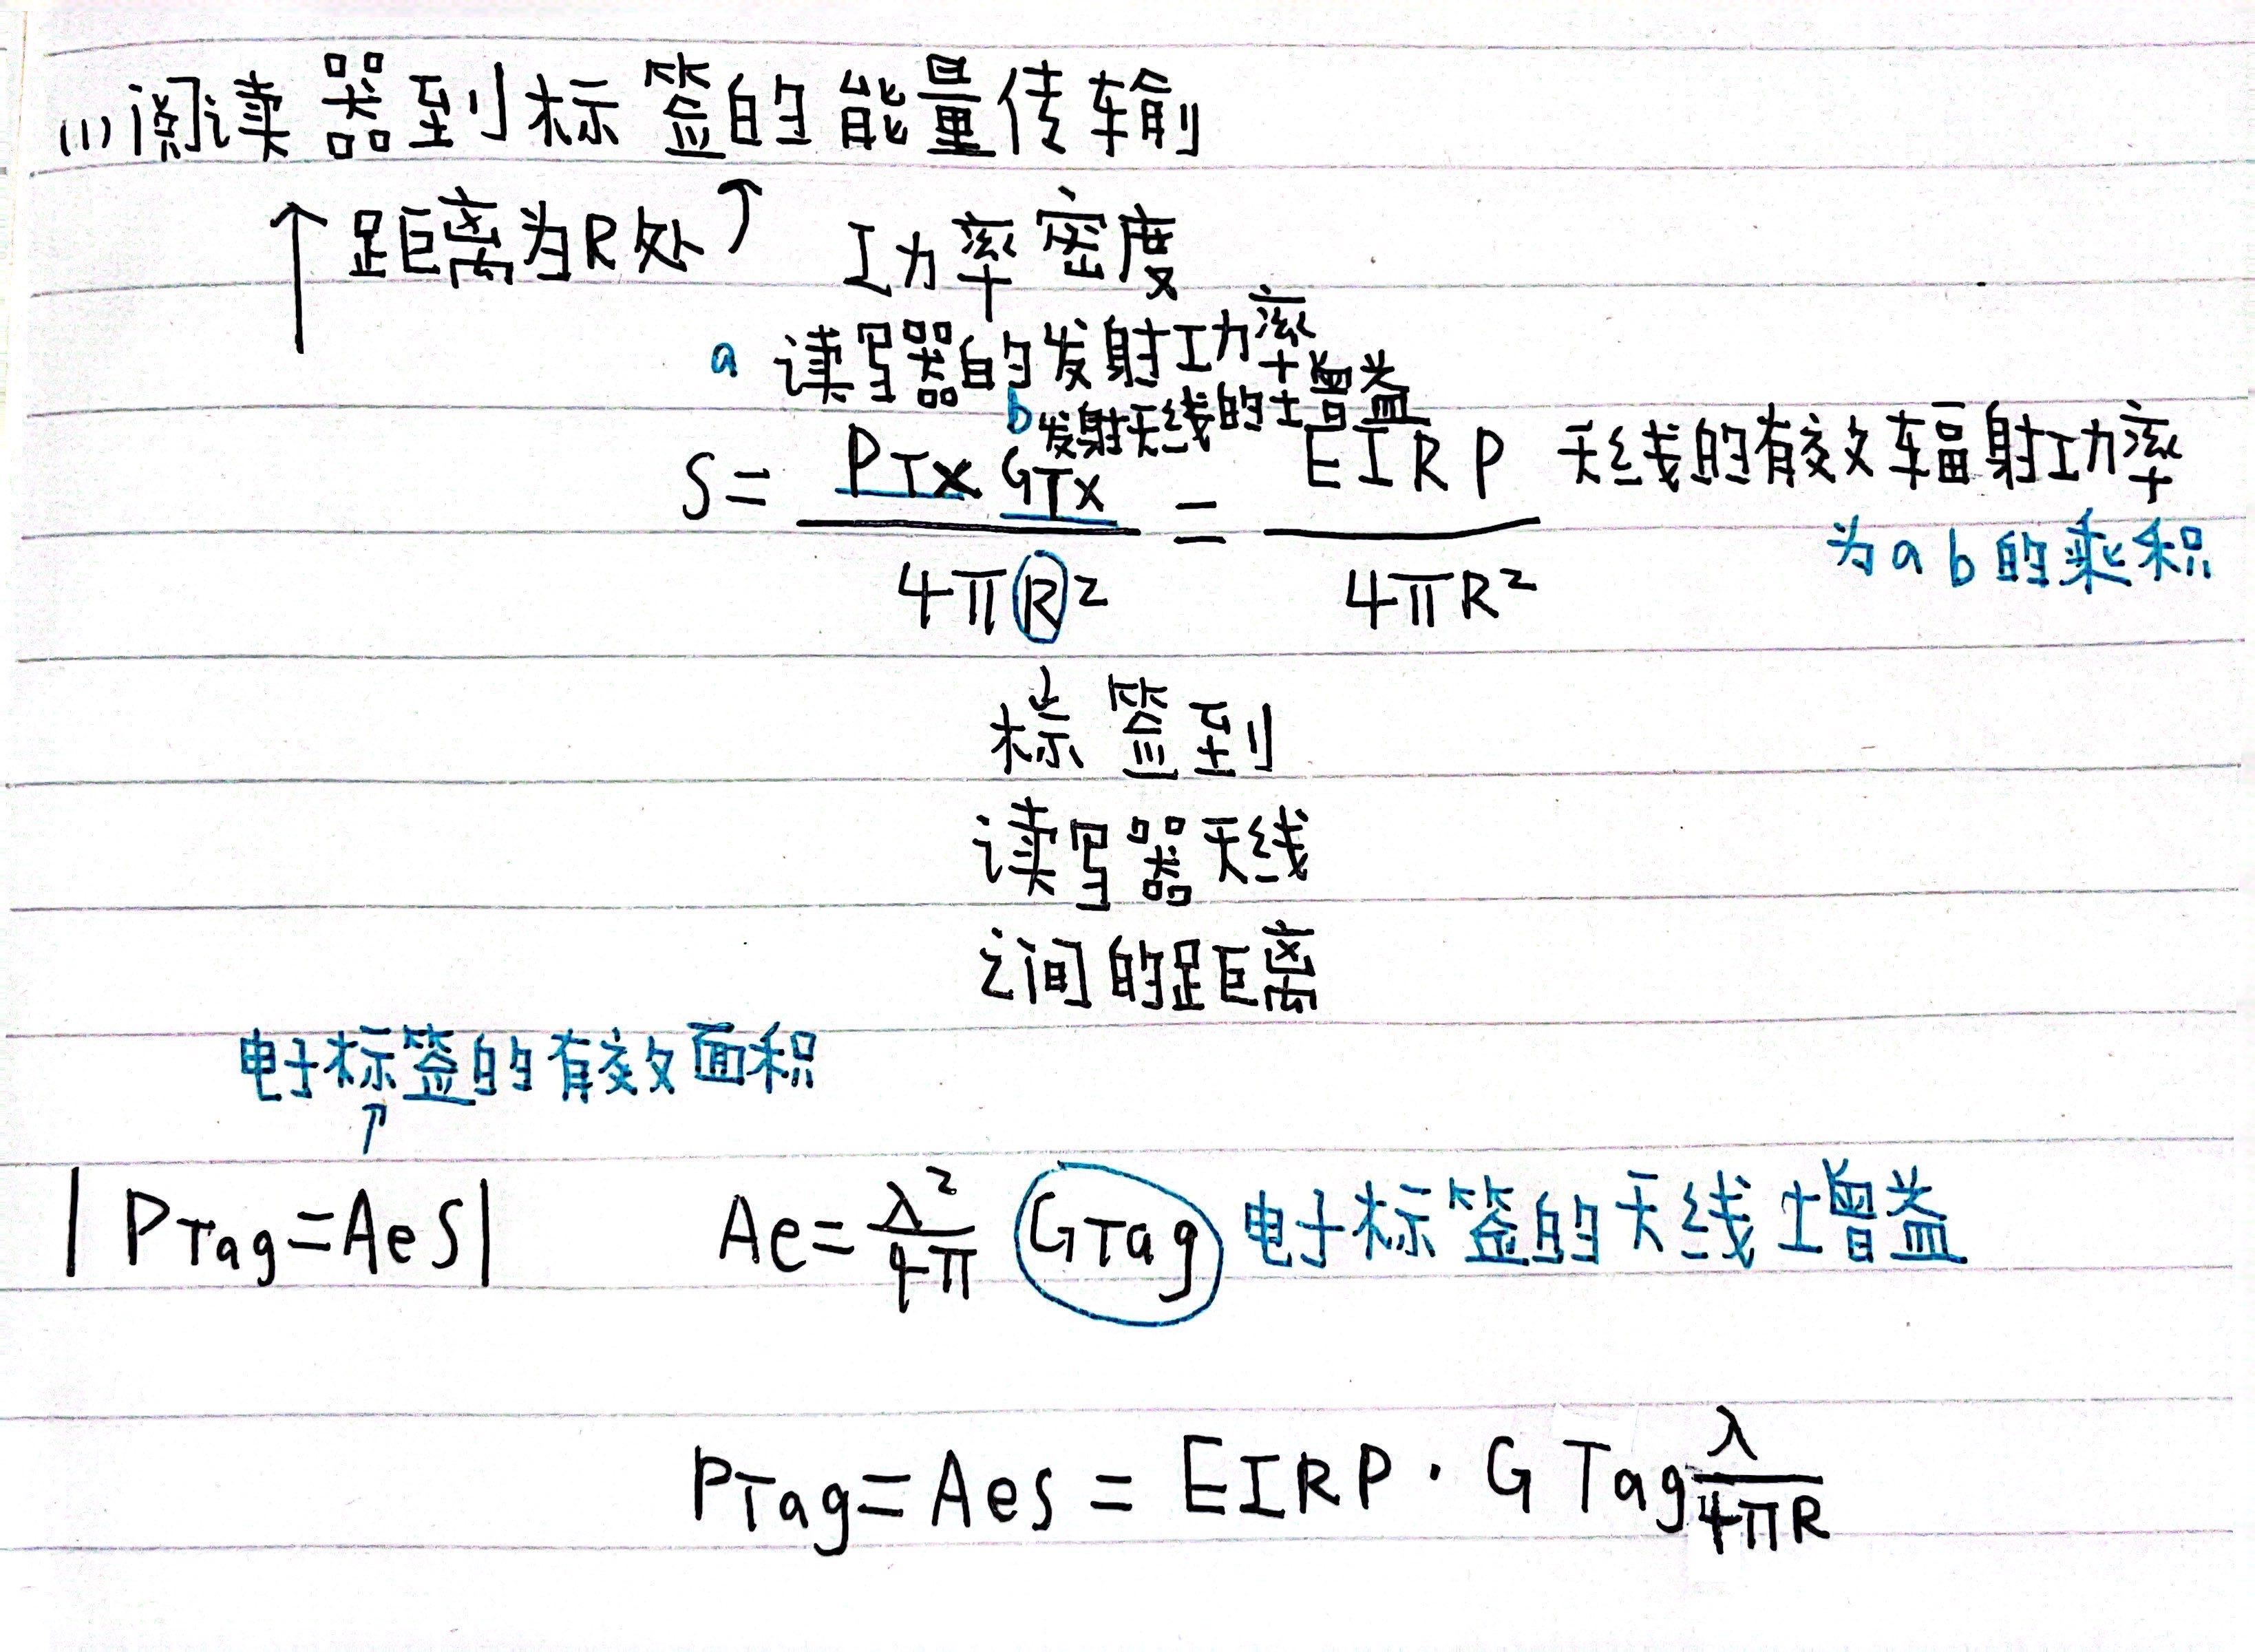 (1)阅读器到标签的能量传输
↑距离为R处↑ 功率密度
a 读写器的发射功率
b发射天线的增益
S= PTx GTx / 4πR² = EIRP / 4πR² 天线的有效辐射功率
为ab的乘积
↓
标签到
读写器天线
之间的距离
电子标签的有效面积
↑
|PTag=AeS| Ae=λ²/4π GTag 电子标签的天线增益
PTag=AeS=EIRP·GTag λ/4πR